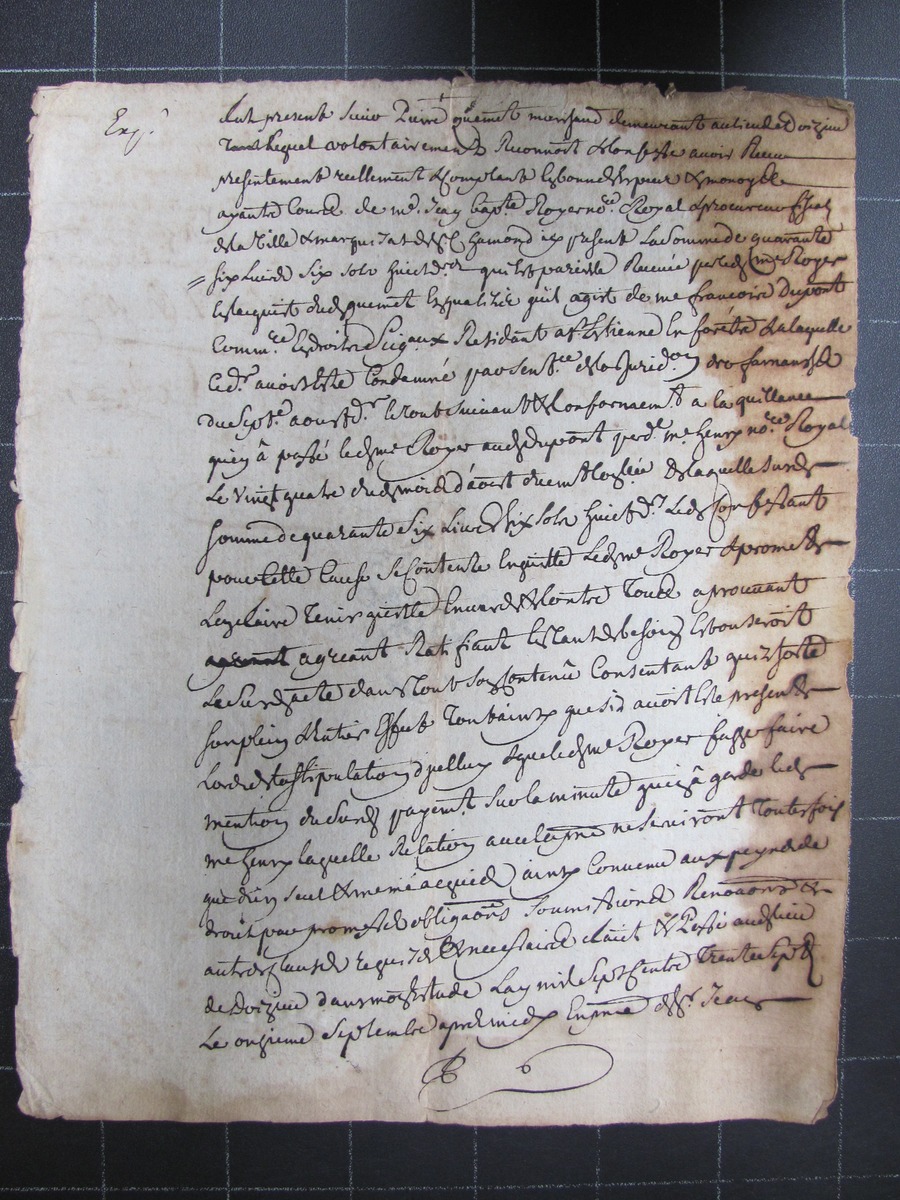 Exp.
fut present sieur Pierre quemet marchand demeurant au lieu de Doizieu
Lequel volontairement Reconnoit & confesse avoir Receu
presentement reellement & comptant Es bonnes Especes & monoye
ayants Cours de me. Jean bapte. Royer nore. Royal & procureur fiscal
de la Ville & marquisat de St. Chamond icy present La Somme de quarante
six Livres six sols huict drs. quil est pareille Receue par led. me. Royer
Es acquit dud. quemet En qualité quil agit de me francois Dupont
Commre. Es droits Seigaux Residant a St. Estienne En foretz & a laquelle
led. avoit Esté Condamné par sentce. de la juridon. de
du Sept. aoust dr. le tout suivant & Conformemt. a la quittance
quen à passé led. me. Royer aud. dupont par dt. me henry nore. Royal
Le Vingt quatre dud. mois d'aoust de laquelle susd.
somme de quarante six Livres six sols huict drs. Led. Confessant
pour telle Cause Se Contente En quitte Led. me Royer & promet
Len faire Tenir quitte Envers & Contre Tous aprouvant
agreant Ratiffiant Estant de besoin Es bon seroit
Le susd. acte dans Tout son Contenû Consentant quil sorte
son plein & Entier Effect Tout ainsy que sil avoit Esté present
Lors de la stipulation dyelluy & que led. me Royer fasse faire
mention du susd. payemt. sur la minute quen à gardé led.
me henry laquelle Relation avec les pntes ne serviront Toutesfois
que dun seul & meme acquict ainsy Convenu aux peynes de
droit par promesses obligaons Soumissions Renonaons &
autres clauses requises & necessaires faict & Passé aud. lieu
de Doizieu dans mon Estude Lan mil Sept Cents Trente Sept &
Le onzieme Septembre apres midy En pnce de Sr. Jean